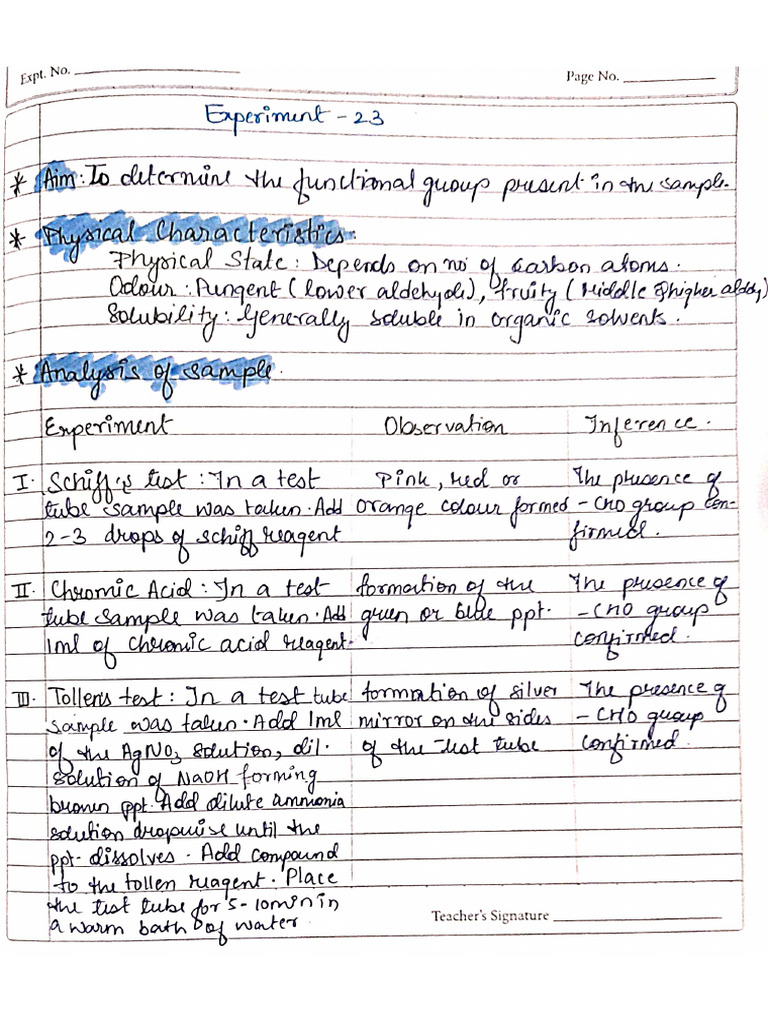 Expt. No.
Page No.
Experiment - 23
* Aim: To determine the functional group present in the sample.
* Physical Characteristics.
Physical State: Depends on no of carbon atoms.
Odour: Pungent (lower aldehyde), fruity (Middle & higher aldehy)
Solubility: Generally soluble in organic solvents.
* Analysis of sample.
Experiment Observation Inference.
I. Schiff's test: In a test Pink, red or The presence of
tube sample was taken. Add orange colour formed - CHO group con-
2-3 drops of schiff reagent firmed.
II. Chromic Acid: In a test formation of the The presence of
tube sample was taken. Add green or blue ppt. - CHO group
1ml of chromic acid reagent. confirmed.
III. Tollen's test: In a test tube formation of silver The presence of
sample was taken. Add 1ml mirror on the sides - CHO group
of the AgNO3 solution, dil. of the test tube confirmed.
solution of NaOH forming
brown ppt. Add dilute ammonia
solution dropwise until the
ppt. dissolves. Add compound
to the tollen reagent. Place
the test tube for 5-10min in
a warm bath of water.
Teacher's Signature